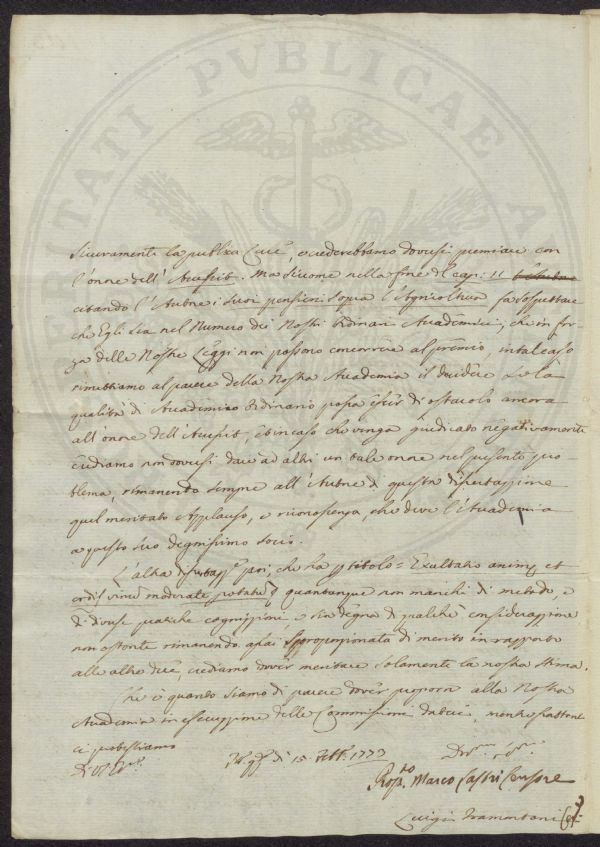 PROSPERITATI PVBLICAE
sicuramente la publica luce, crederebbamo doversi premiare con
l'onore dell'Accessit. Ma siccome nella fine del cap: 11
citando l'Autore i suoi pensieri sopra l'Agricoltura fa sospettare
che Egli sia nel Numero dei Nostri Ordinari Accademici, che in for-
za delle Nostre Leggi non possono concorrere al premio, in tal caso
rimettiamo al parere della Nostra Accademia il decidere se la
qualità di Accademico Ordinario possa esser di ostacolo ancora
all'onore dell'Accessit, ed in caso che venga giudicato negativamente
crediamo non doversi dare ad altri un tale onore nel presente pro-
blema, rimanendo sempre all'Autore di questa dissertazione
quel meritato Applauso, e riconoscenza, che deve l'Accademia
a questo suo degnissimo socio.
L'altra dissertazne poi, che ha p titolo = Exultatio animi et
cordis vinum moderate potatum quantunque non manchi di metodo, e
di diverse pratiche cognizioni, e sia degna di qualche considerazione
non ostante rimanendo assai sproporzionata di merito in rapporto
alle altre due, crediamo dover meritare solamente la nostra stima.
Che è quanto siamo di parere dover proporre alla Nostra
Accademia in esecuzione delle Commissioni dateci, mentre
ci protestiamo
Di
di 15. Sett. 1773
Marco Lastri Censore
Luigi Tramontani